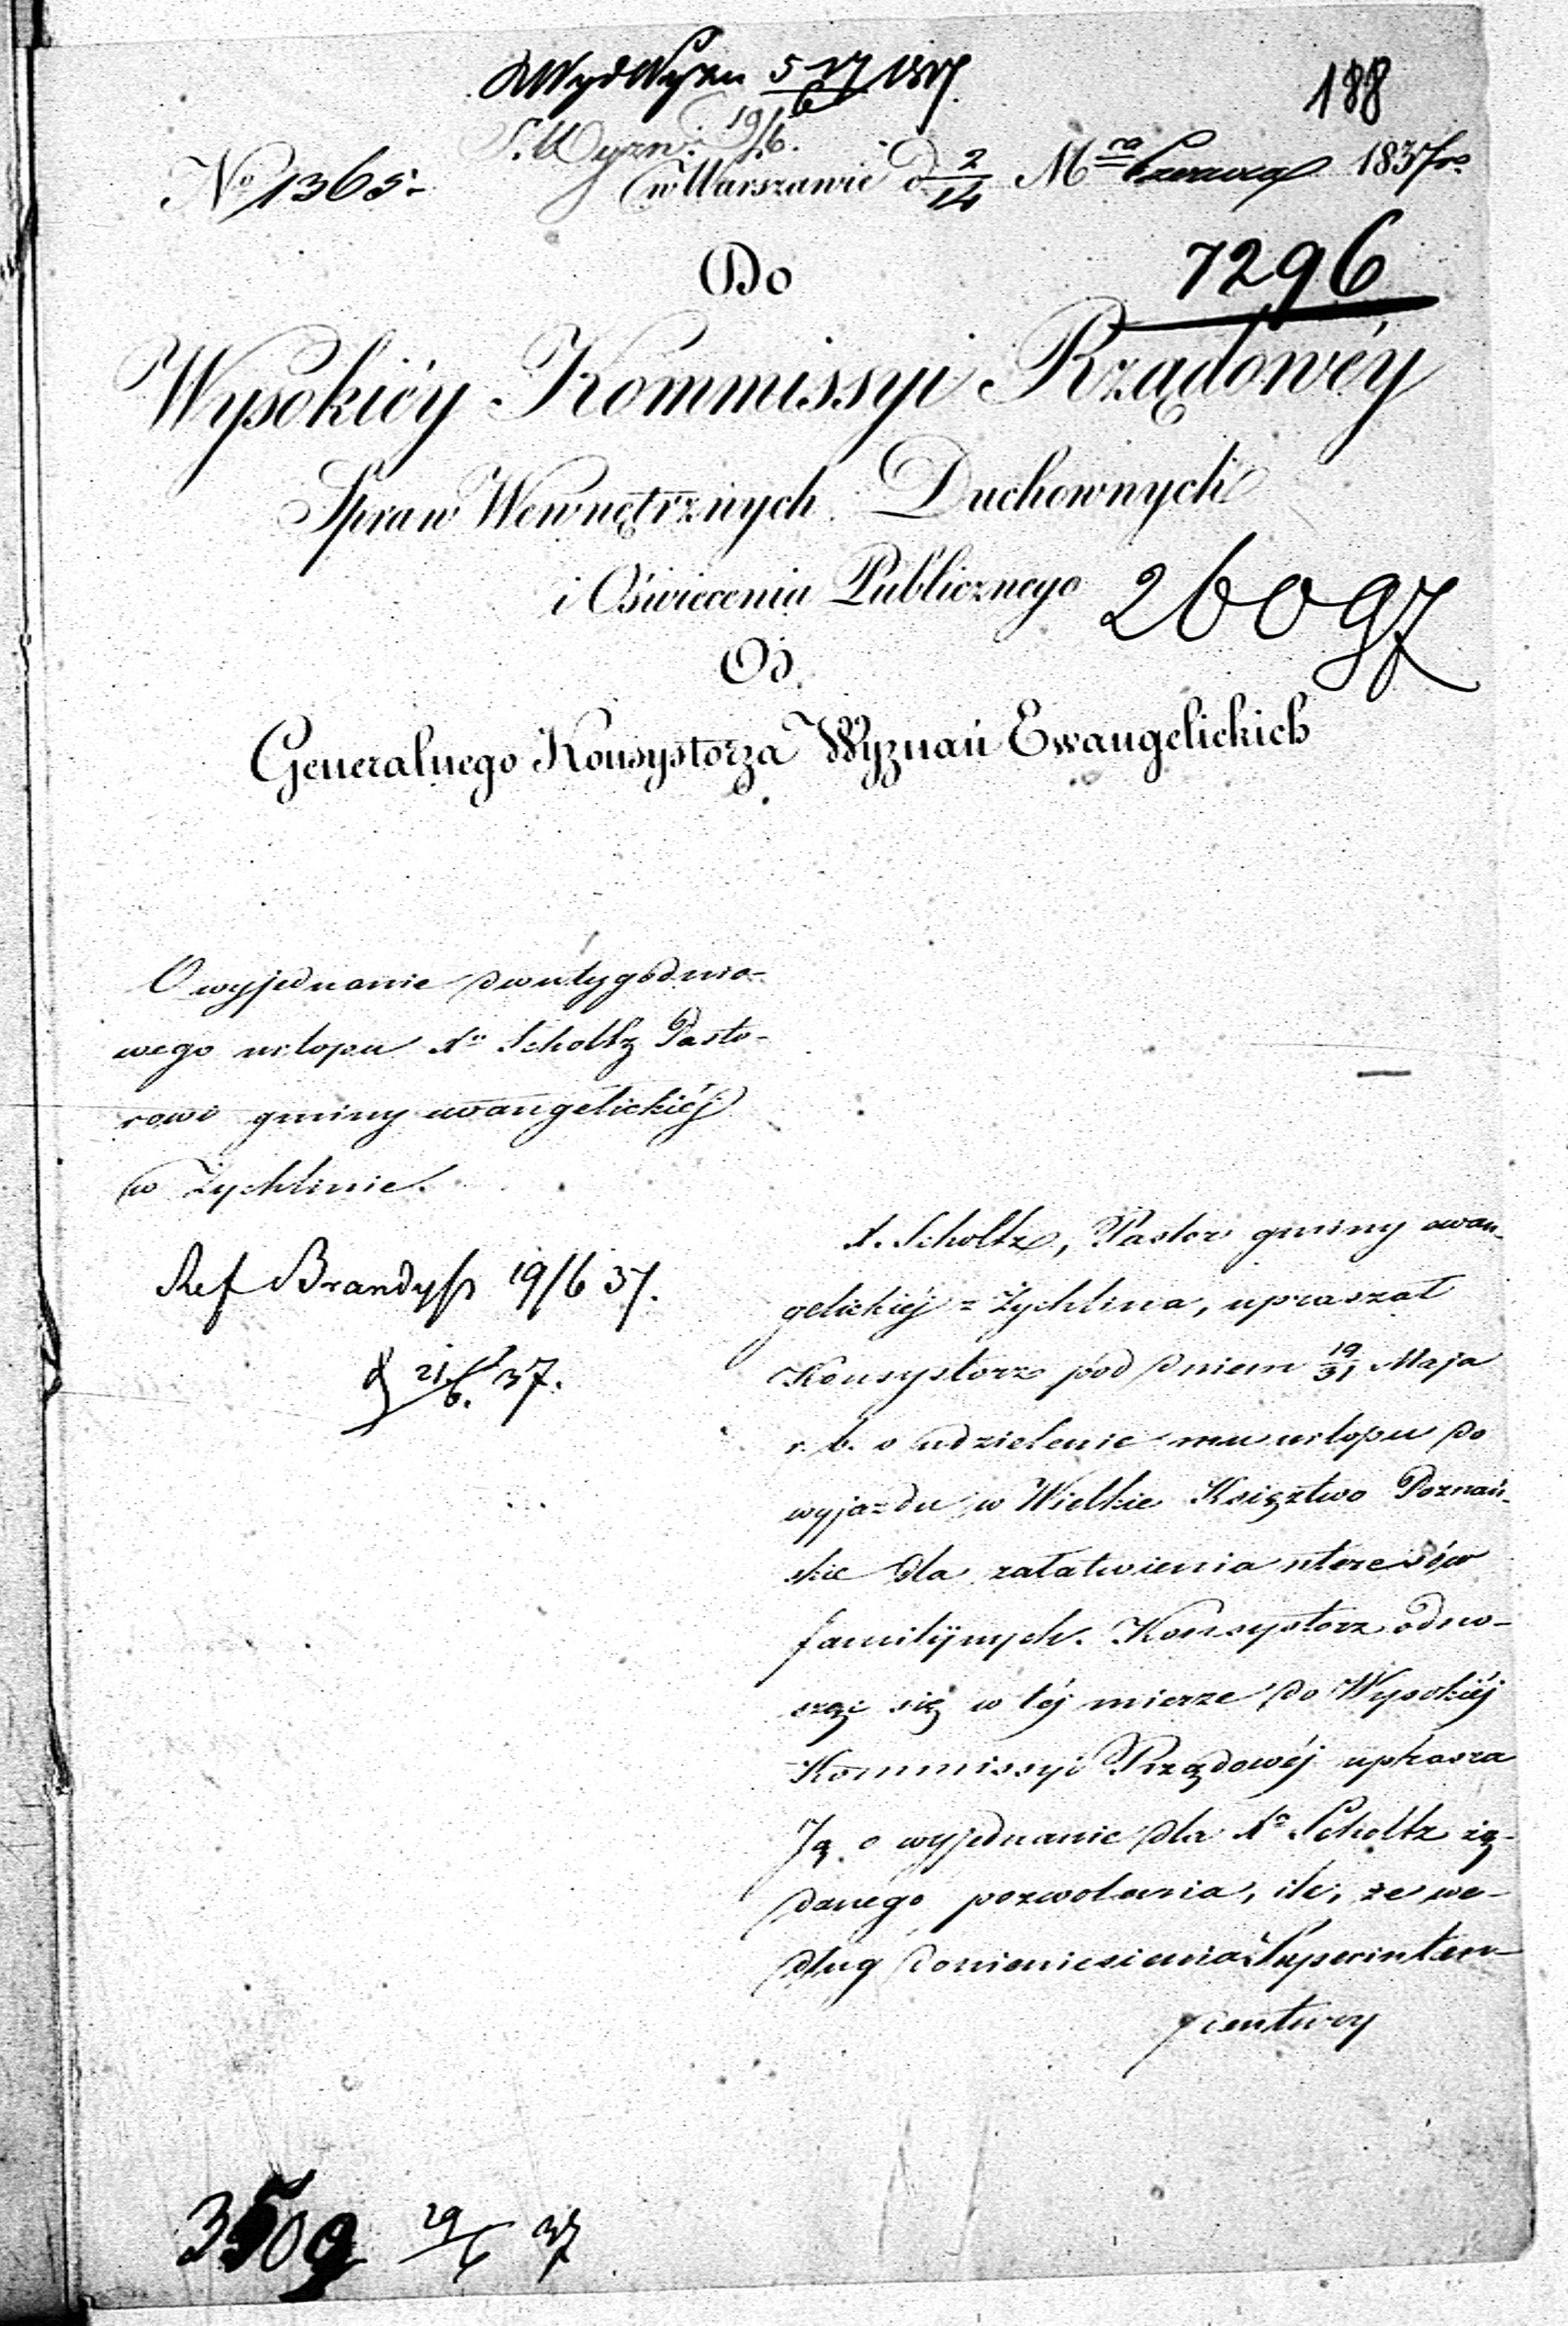 188
S. Wyzn. 19/6.
No 1365.
w Warszawie d 2/14 Mca Czerwca 1837 ro
Do
7296
Wysokiéy Kommissyi Rządowéy
Spraw Wewnętrznych Duchownych
i Oświecenia Publicznego
26097
Od
Generalnego Konsystorza Wyznań Ewangelickich
O wyjednanie dwutygodnio-
wego urlopu Xu Scholtz Pasto-
rowi gminy ewangelickiéj
w Żychlinie.
Ref Brandyss 19/6 37.
21/6. 37.
X. Scholtz, Pastor gminy ewan-
gelickiéj z Żychlina, upraszał
Konsystorz pod dniem 19/31 Maja
r. b. o udzielenie mu urlopu do
wyjazdu w Wielkie Księztwo Poznań-
skie dla załatwienia interesów
familijnych. Konsystorz odno-
sząc się w téj mierze do Wysokiéj
Kommissyi Rządowéj uprasza
Ją o wyjednanie dla Xa Scholtz żą-
danego pozwolenia, ile, że we-
dług doniesienia Superinten-
dentury
3509 29/6 37